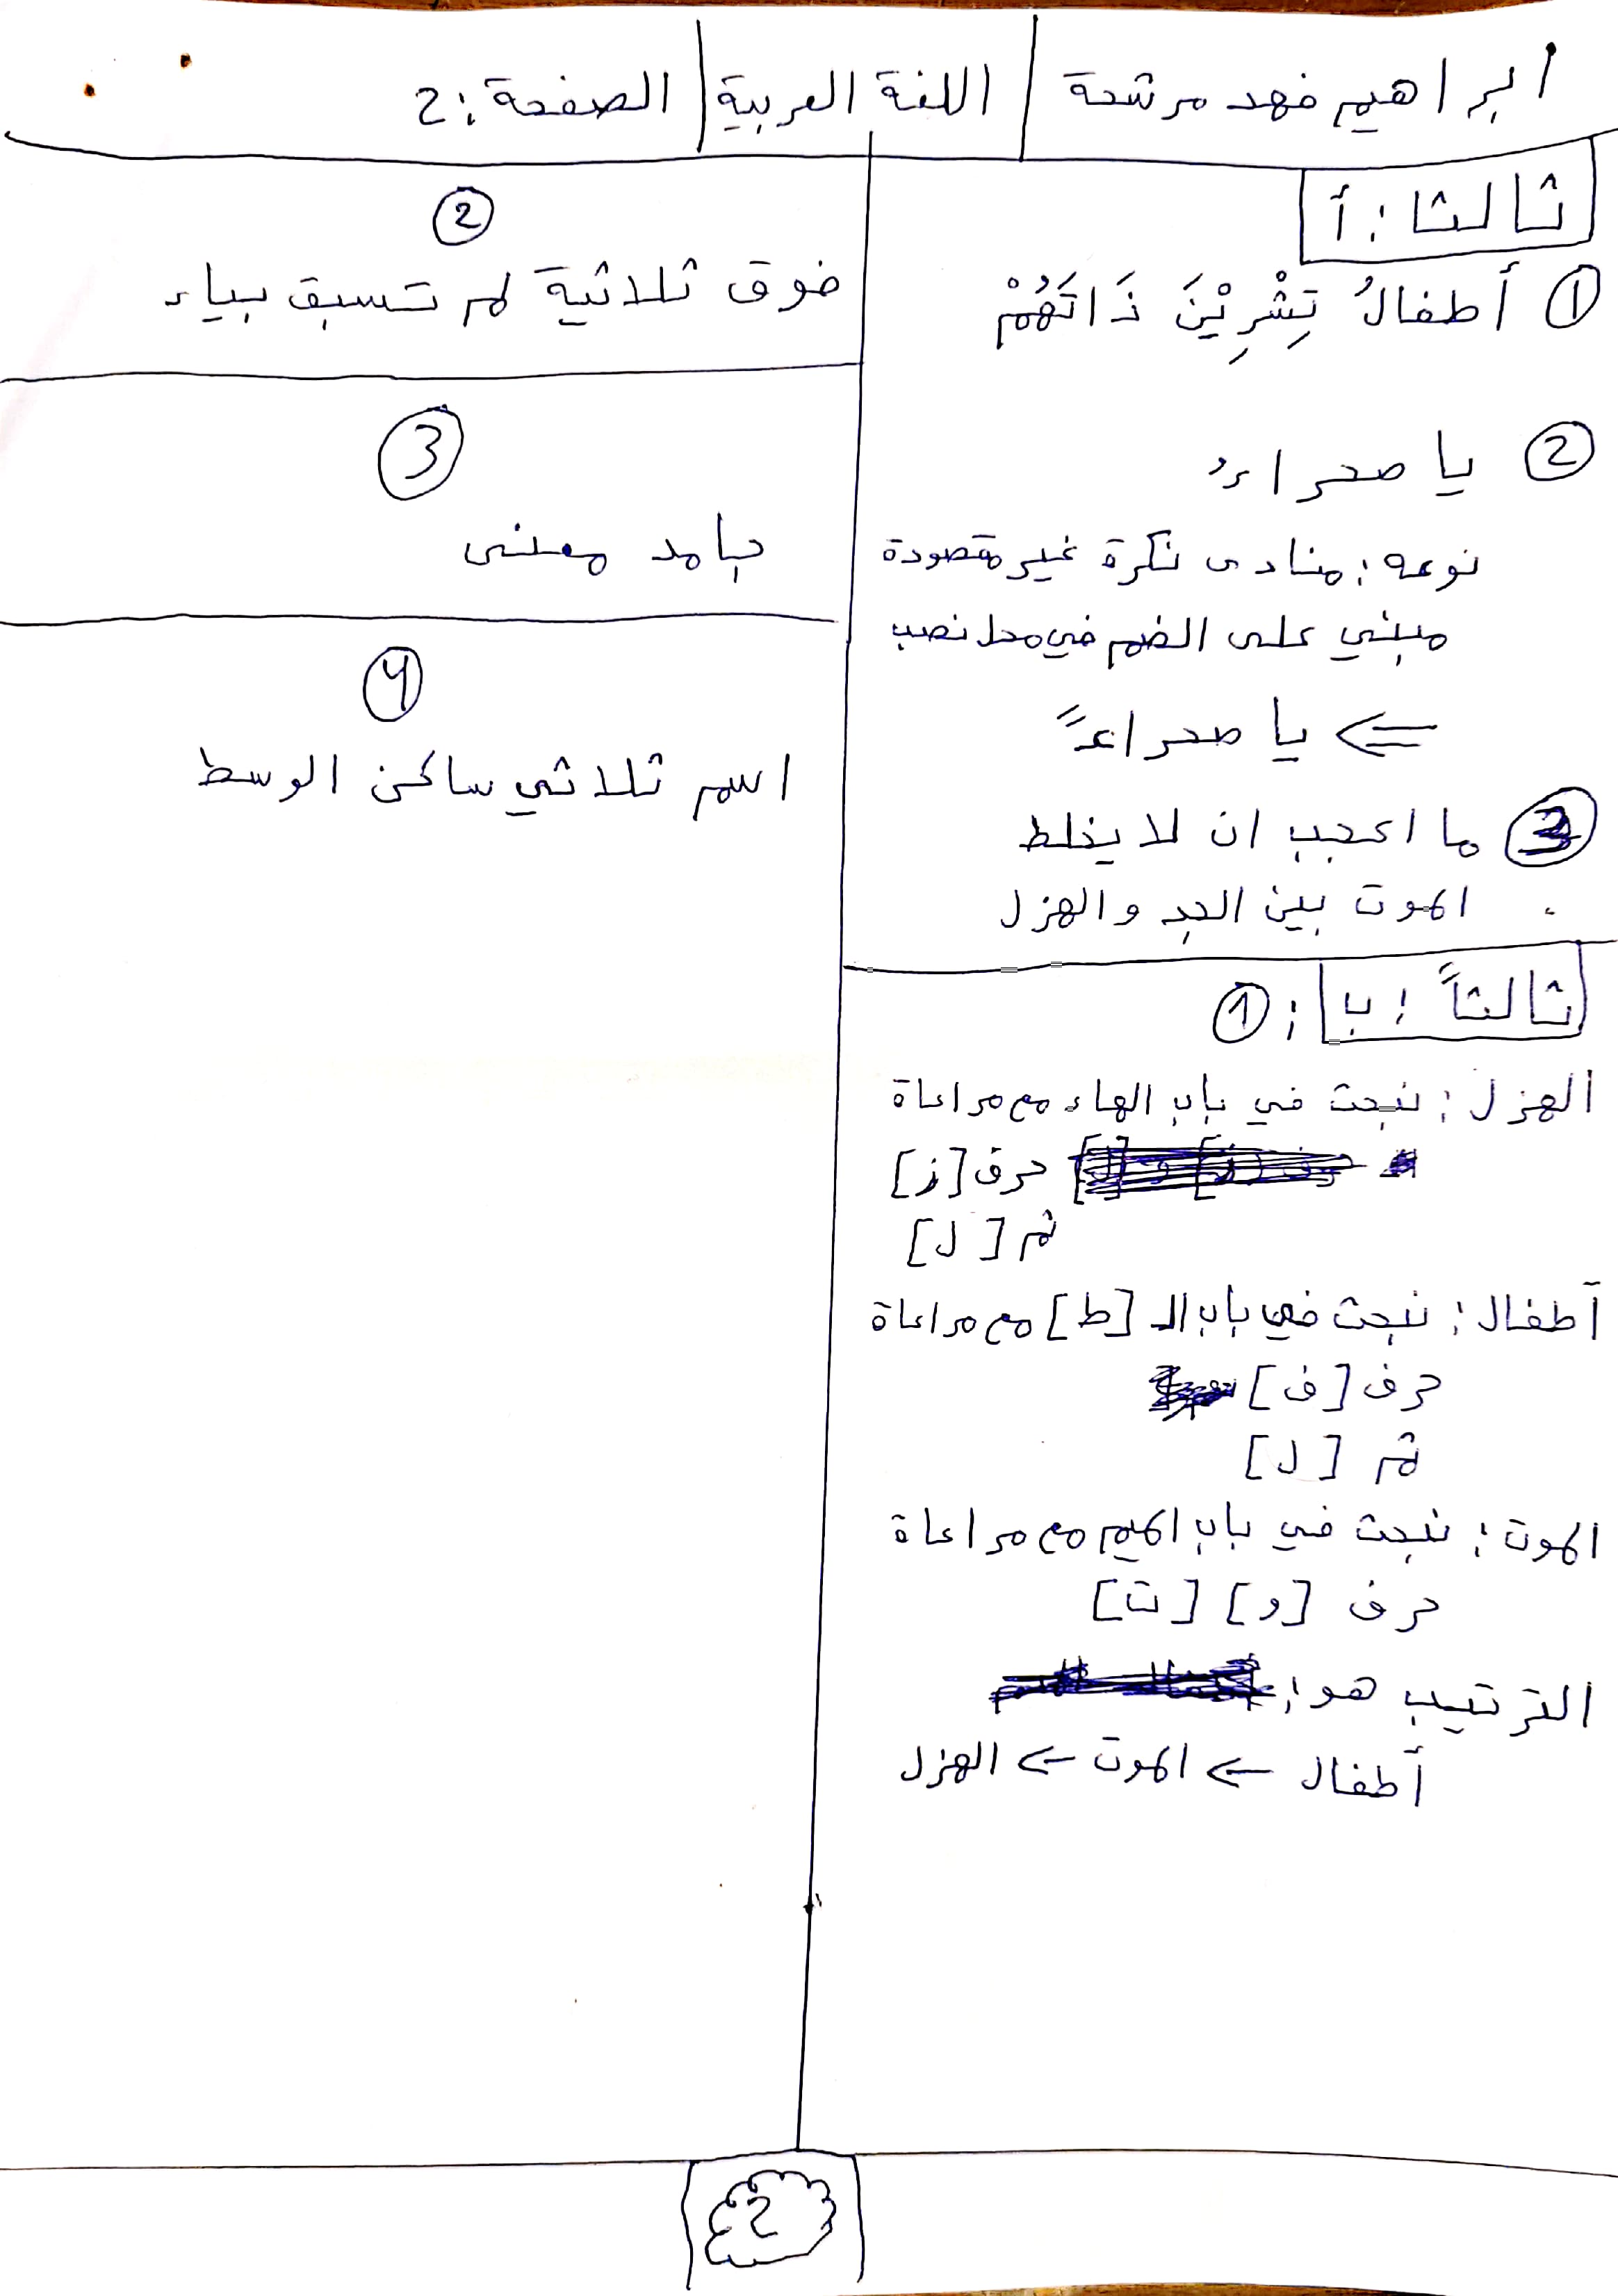 ابراهيم فهد مرشحة | اللغة العربية | الصفحة: 2
ثالثا: أ
① أطفالُ تِشْرِيْنَ ذَاتَهُمْ
② يا صحراءُ
نوعه: منادى نكرة غير مقصودة
مبني على الضم في محل نصب
⇐ يا صحراءً
3 ما اعجب ان لا يخلط
الموت بين الجد والهزل
ثالثاً: ب: ①
الهزل: نبحث في باب الهاء مع مراعاة
حرف [ز]
ثم [ل]
أطفال: نبحث في باب الـ [ط] مع مراعاة
حرف [ف]
ثم [ل]
الموت: نبحث في باب الميم مع مراعاة
حرف [و] [ت]
الترتيب هو:
أطفال ← الموت ← الهزل
②
فوق ثلاثية لم تسبق بياء
③
جامد معنى
④
اسم ثلاثي ساكن الوسط
2